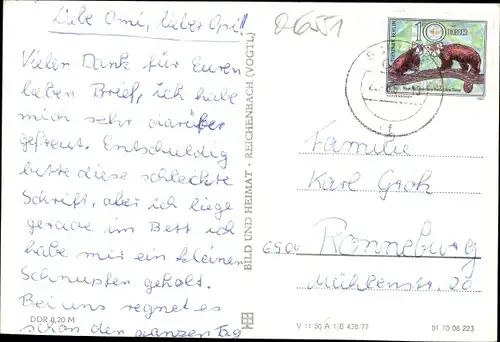 Liebe Omi, lieber Opi!
Vielen Dank für Euren
lieben Brief, ich habe
mich sehr darüber
gefreut. Entschuldig
bitte diese schlechte
Schrift, aber ich liege
gerade im Bett ich
habe mir ein kleinen
Schnupfen geholt.
Bei uns regnet es
schon den ganzen Tag
DDR 0,20 M
BILD UND HEIMAT · REICHENBACH (VOGTL)
10
Familie
Karl Groh
6506 Ronneburg
Mühlenstr. 20
V 11 50 A 1/B 438/77
01 10 08 223